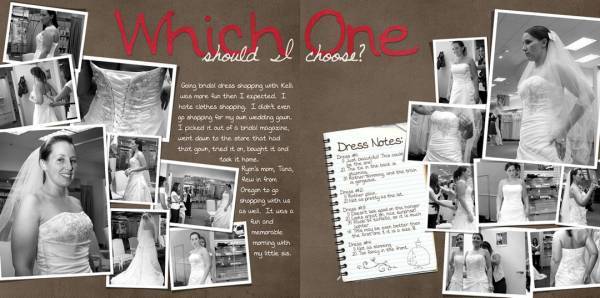 Which One
should I choose?
Going bridal dress shopping with Kelli
was more fun then I expected. I
hate clothes shopping. I didn't even
go shopping for my own wedding gown.
I picked it out of a bridal magazine,
went down to the store that had
that gown, tried it on, bought it and
took it home.
Ryan's mom, Tana,
flew in from
Oregon to go
shopping with us
as well. It was a
fun and
memorable
morning with
my little sis.
Dress Notes:
Dress #1
1) Just beautiful! This could
be the one!
2) The tie in the back is
stunning.
3) Rather slimming, and the train
is gorgeous.
Dress #2
1) Rather plain.
2) Not as pretty as the 1st.
Dress #3
1) Doesn't look good on the hanger
2) Looks great on, nice surprise!
3) Made of so it is much
lighter.
4) This may be even better than
the first one & it is a size 8!
Dress #4
1) Not as stunning.
2) Too fancy in the front.